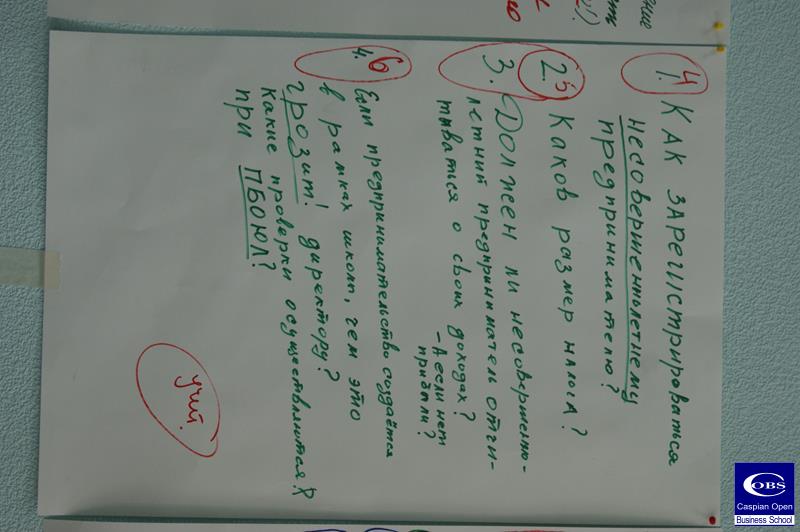 4
1. КАК ЗАРЕГИСТРИРОВАТЬСЯ
НЕСОВЕРШЕННОЛЕТНЕМУ
ПРЕДПРИНИМАТЕЛЮ?
5
2. Каков размер налога?
3. Должен ли несовершенно-
летний предприниматель отчи-
тываться о своих доходах?
- А если нет
прибыли?
6
4. Если предпринимательство создаётся
в рамках школы, чем это
грозит! директору?
Какие проверки осуществляются
при ПБОЮЛ?
COBS
Caspian Open
Business School